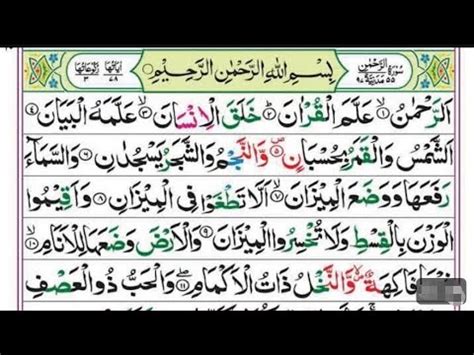 سُوْرَةُ الرَّحْمٰنِ
٥٥ مَدَنِيَّةٌ
بِسْمِ اللّٰهِ الرَّحْمٰنِ الرَّحِيْمِ
اٰيَاتُهَا ٧٨
رُكُوْعَاتُهَا ٣
اَلرَّحْمٰنُ ۙ۱ عَلَّمَ الْقُرْاٰنَ ؕ۲ خَلَقَ الْاِنْسَانَ ۙ۳ عَلَّمَهُ الْبَيَانَ ۴
اَلشَّمْسُ وَالْقَمَرُ بِحُسْبَانٍ ۵ وَّالنَّجْمُ وَالشَّجَرُ يَسْجُدٰنِ ۶ وَالسَّمَآءَ
رَفَعَهَا وَوَضَعَ الْمِيْزَانَ ۙ۷ اَلَّا تَطْغَوْا فِي الْمِيْزَانِ ۸ وَاَقِيْمُوا
الْوَزْنَ بِالْقِسْطِ وَلَا تُخْسِرُوا الْمِيْزَانَ ۹ وَالْاَرْضَ وَضَعَهَا لِلْاَنَامِ ۱۰
فِيْهَا فَاكِهَةٌ وَّالنَّخْلُ ذَاتُ الْاَكْمَامِ ۱۱ وَالْحَبُّ ذُو الْعَصْفِ